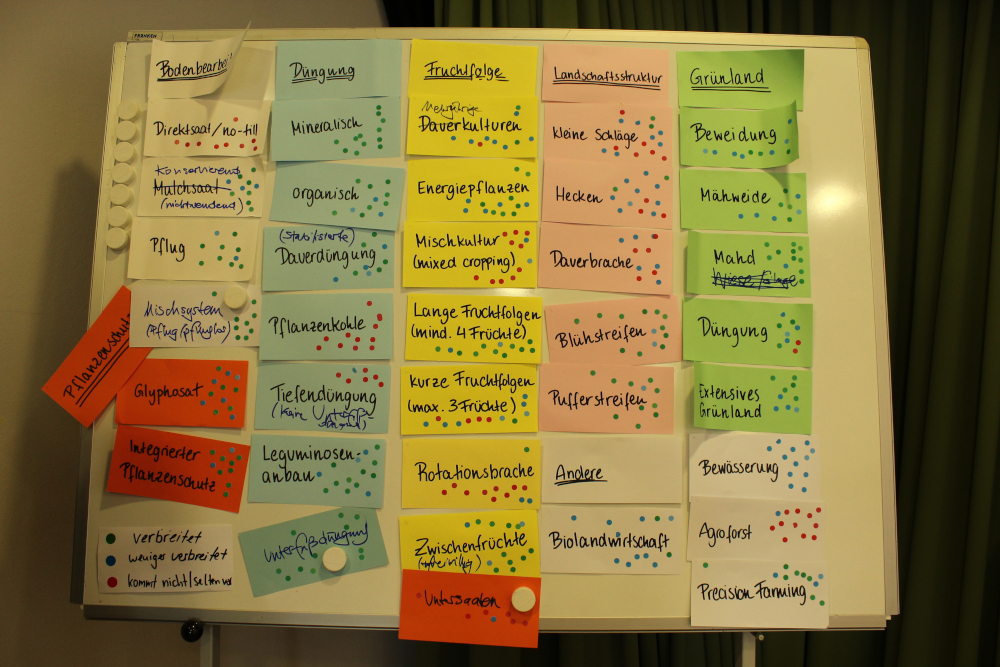 Bodenbearbei
Direktsaat/no-till
Konservierend
Mulchsaat
(nichtwendend)
Pflug
Mischsystem
(Pflug/pfluglos)
Pflanzenschutz
Glyphosat
Integrierter
Pflanzenschutz
verbreitet
weniger verbreitet
kommt nicht/selten vor
Düngung
Mineralisch
organisch
(stabilisierte)
Daverdüngung
Pflanzenkohle
Tiefendüngung
(kein
Leguminosen-
anbau
Unterfußdüngung
Fruchtfolge
Mehrjährige
Dauerkulturen
Energiepflanzen
Mischkultur
(mixed cropping)
Lange Fruchtfolgen
(mind. 4 Früchte)
kurze Fruchtfolgen
(max. 3 Früchte)
Rotationsbrache
Zwischenfrüchte
Untersaaten
Landschaftsstruktur
Kleine Schläge
Hecken
Dauerbrache
Blühstreifen
Pufferstreifen
Andere
Biolandwirtschaft
Grünland
Beweidung
Mähweide
Mahd
Düngung
Extensives
Grünland
Bewässerung
Agroforst
Precision Farming